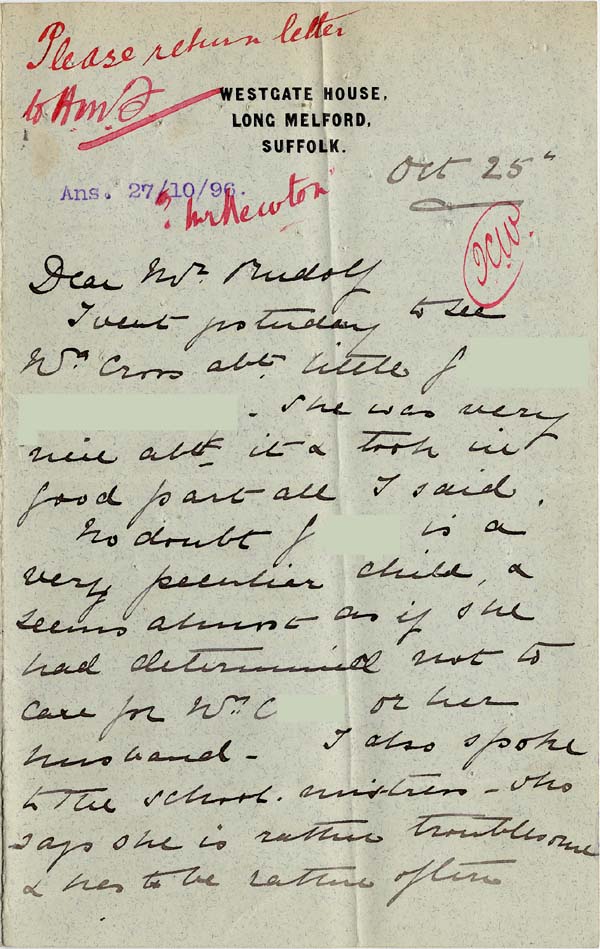 Please return letter
to HMS.
WESTGATE HOUSE,
LONG MELFORD,
SUFFOLK.
Oct 25"
Ans. 27/10/96.
? Mr Newton
Dear Mr. Rudolf
I went yesterday to see
Mrs Cross abt. little J
. She was very
nice abt. it & took in
good part all I said.
No doubt J is a
very peculiar child, &
seems almost as if she
had determined not to
care for Mrs C or her
husband - I also spoke
to the school-mistress - who
says she is rather troublesome
& has to be rather often